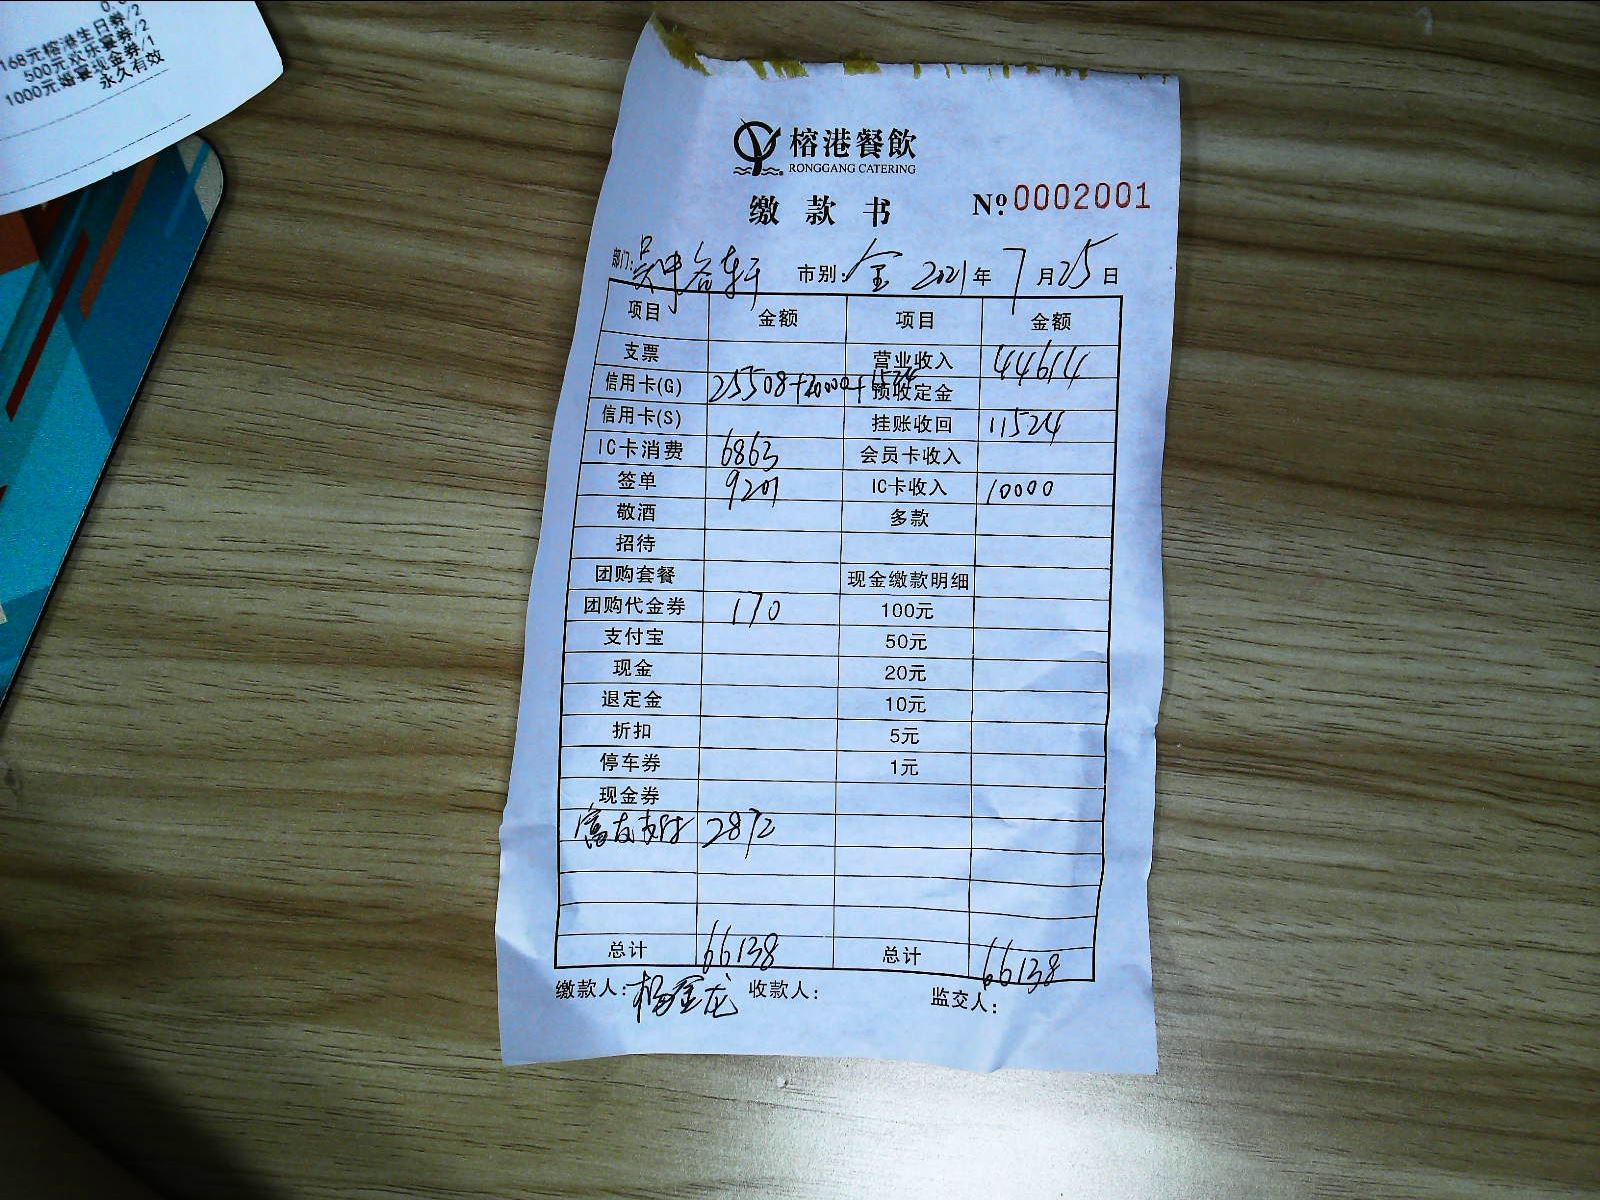 168元榕港生日券/2
500元欢乐宴券/2
1000元婚宴现金券/1
永久有效
榕港餐飲
RONGGANG CATERING
缴款书 №0002001
部门: 吴中 轩 市别: 全 2021年7月25日
项目 金额 项目 金额
支票 营业收入 44614
信用卡(G) 25508+10000+11524 预收定金
信用卡(S) 挂账收回 11524
IC卡消费 6863 会员卡收入
签单 9201 IC卡收入 10000
敬酒 多款
招待
团购套餐 现金缴款明细
团购代金券 170 100元
支付宝 50元
现金 20元
退定金 10元
折扣 5元
停车券 1元
现金券
富友支付 2872
总计 66138 总计 66138
缴款人: 杨金龙 收款人: 监交人: